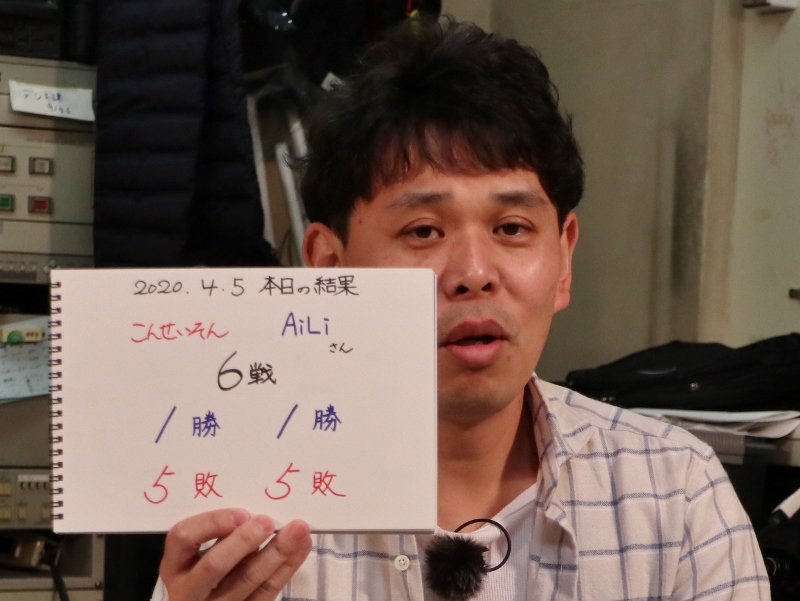 2020.4.5 本日の結果
こんせいそん AiLi
さん
6戦
1勝 1勝
5敗 5敗